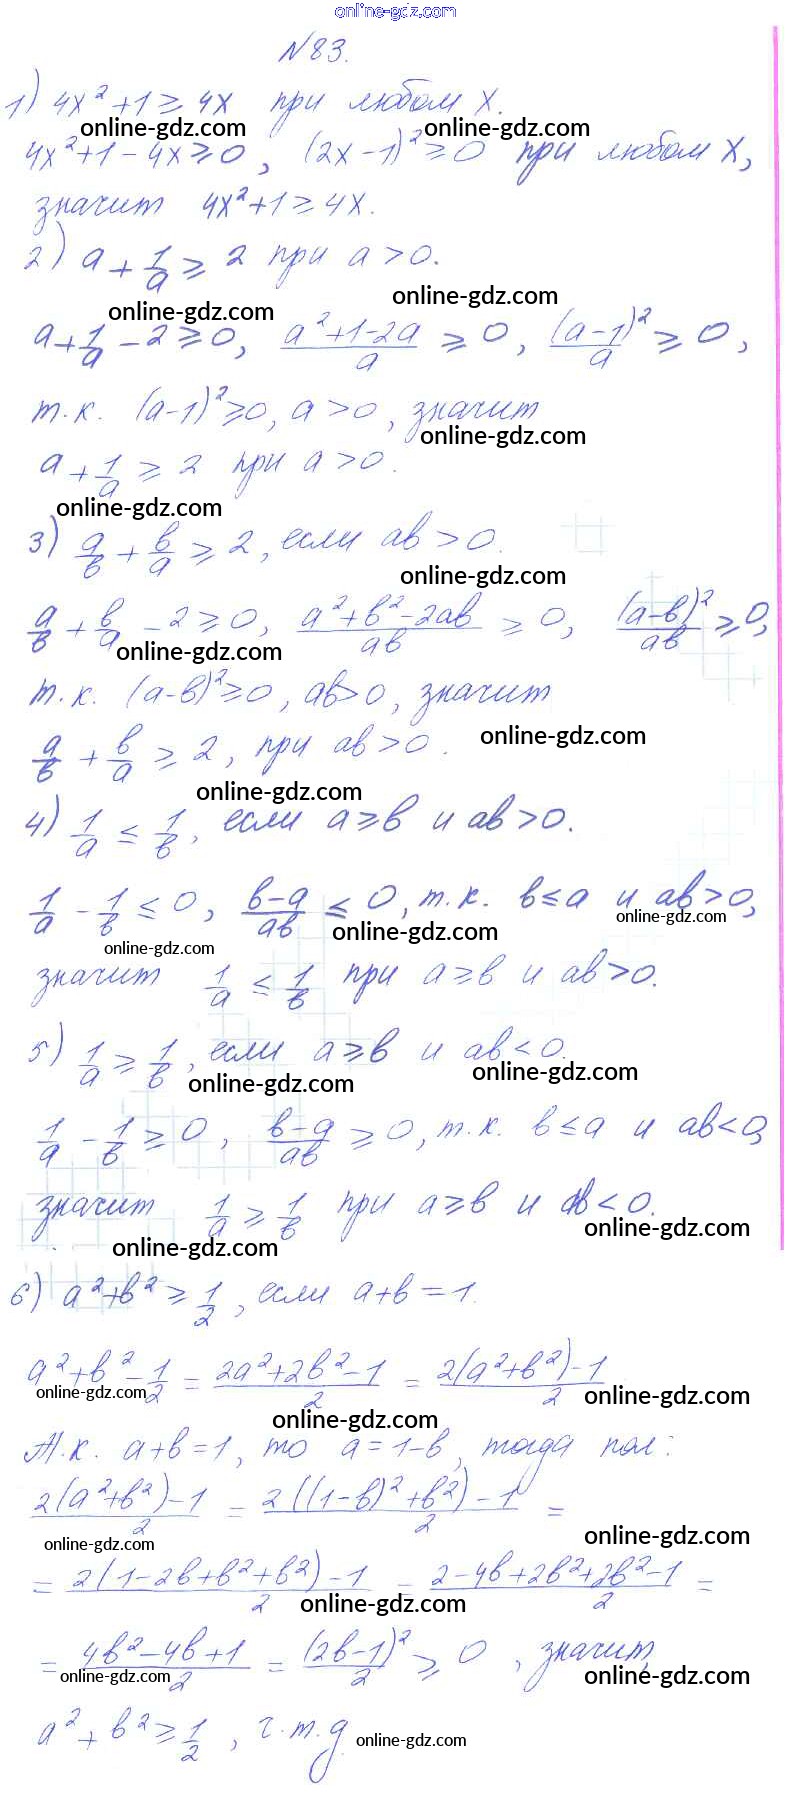 online-gdz.com
N83.
1) 4x² + 1 ≥ 4x при любом x.
online-gdz.com online-gdz.com
4x² + 1 - 4x ≥ 0, (2x - 1)² ≥ 0 при любом x,
значит 4x² + 1 ≥ 4x.
2) a + 1/a ≥ 2 при a > 0.
online-gdz.com online-gdz.com
a + 1/a - 2 ≥ 0, (a² + 1 - 2a)/a ≥ 0, (a-1)²/a ≥ 0,
т.к. (a-1)² ≥ 0, a > 0, значит
online-gdz.com
a + 1/a ≥ 2 при a > 0.
online-gdz.com
3) a/в + в/a ≥ 2, если aв > 0.
online-gdz.com
a/в + в/a - 2 ≥ 0, (a² + в² - 2aв)/aв ≥ 0, (a-в)²/aв ≥ 0,
online-gdz.com
т.к. (a-в)² ≥ 0, aв > 0, значит
a/в + в/a ≥ 2, при aв > 0.
online-gdz.com
online-gdz.com
4) 1/a ≤ 1/в, если a ≥ в и aв > 0.
1/a - 1/в ≤ 0, (в-a)/aв ≤ 0, т.к. в ≤ a и aв > 0,
online-gdz.com online-gdz.com online-gdz.com
значит 1/a ≤ 1/в при a ≥ в и aв > 0.
5) 1/a ≥ 1/в, если a ≥ в и aв < 0.
online-gdz.com online-gdz.com
1/a - 1/в ≥ 0, (в-a)/aв ≥ 0, т.к. в ≤ a и aв < 0,
значит 1/a ≥ 1/в при a ≥ в и aв < 0.
online-gdz.com online-gdz.com
6) a² + в² ≥ 1/2, если a + в = 1.
a² + в² - 1/2 = (2a² + 2в² - 1)/2 = (2(a² + в²) - 1)/2
online-gdz.com online-gdz.com online-gdz.com
Т.к. a + в = 1, то a = 1 - в, тогда пол:
(2(a² + в²) - 1)/2 = (2((1-в)² + в²) - 1)/2 =
online-gdz.com online-gdz.com
= (2(1 - 2в + в² + в²) - 1)/2 = (2 - 4в + 2в² + 2в² - 1)/2 =
online-gdz.com
= (4в² - 4в + 1)/2 = (2в-1)²/2 ≥ 0, значит,
online-gdz.com online-gdz.com
a² + в² ≥ 1/2, ч.т.д.
online-gdz.com